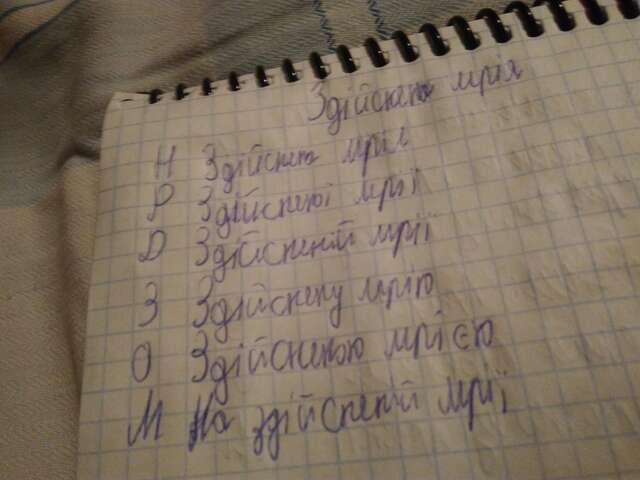 Здійснена мрія
Н Здійснена мрія
Р Здійсненої мрії
Д Здійсненій мрії
З Здійснену мрію
О Здійсненою мрією
М На здійсненій мрії